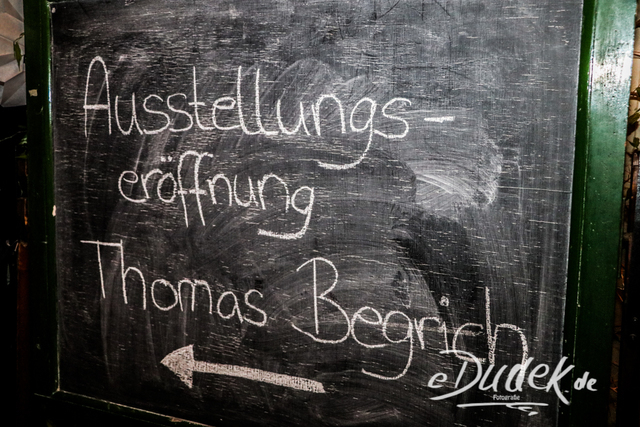 Ausstellungs-
eröffnung
Thomas Begrich
eDudek.de
Fotografie